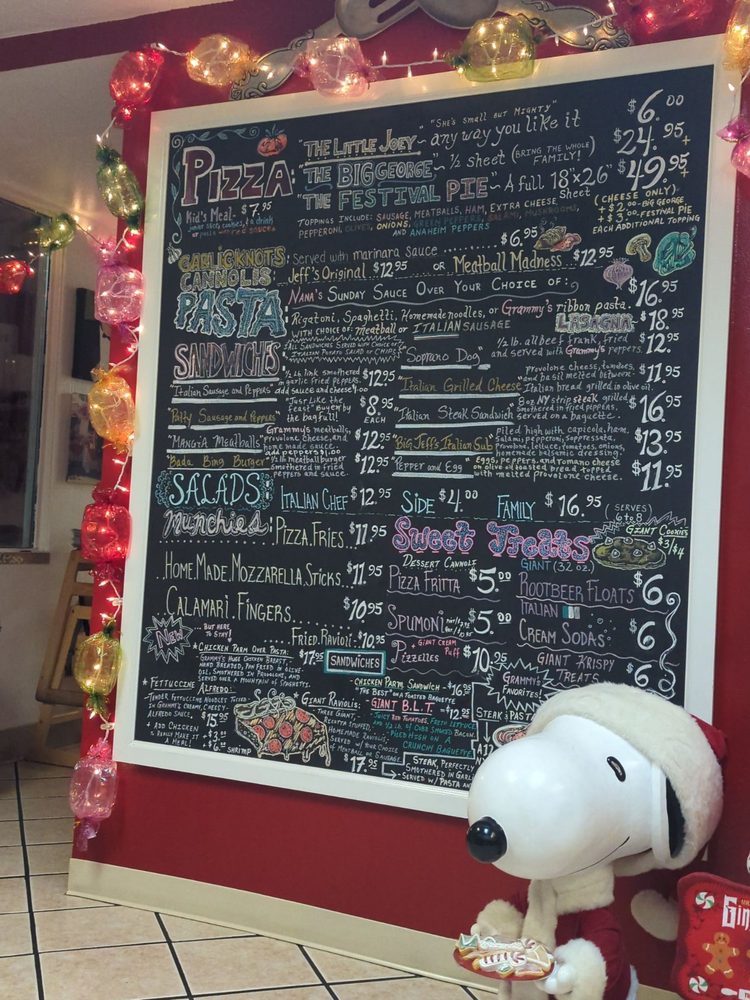 PIZZA
Kid's Meal- $7.95
"THE LITTLE JOEY"~ "SHE'S SMALL BUT MIGHTY"
any way you like it $6.00
"THE BIG GEORGE"~ ½ sheet (BRING THE WHOLE FAMILY!) $24.95+
"THE FESTIVAL PIE"~ A full 18"x26" sheet $49.95+
TOPPINGS INCLUDE: SAUSAGE, MEATBALLS, HAM, EXTRA CHEESE,
PEPPERONI, OLIVES, ONIONS, GREEN PEPPERS, SALAMI, MUSHROOMS,
AND ANAHEIM PEPPERS
(CHEESE ONLY)
+ $2.00-BIG GEORGE
+ $3.00-FESTIVAL PIE
EACH ADDITIONAL TOPPING
GARLIC KNOTS: Served with marinara sauce $6.95
CANNOLIS Jeff's Original $12.95 or Meatball Madness $12.95
PASTA
NANA'S SUNDAY SAUCE OVER YOUR CHOICE OF:
Rigatoni, Spaghetti, Homemade noodles, or Grammy's ribbon pasta. $16.95
WITH CHOICE OF: meatball or ITALIAN SAUSAGE
LASAGNA $18.95
SANDWICHES
ALL SANDWICHES SERVED WITH CHOICE OF
ITALIAN POTATO SALAD OR CHIPS
"Soprano Dog" ½ lb. all beef frank, fried
and served with Grammy's peppers. $12.95
"Italian Sausage and Peppers" ½ lb link smothered
in garlic fried peppers.
add sauce and cheese $12.95
"Italian Grilled Cheese" provolone cheese, tomatoes,
and basil melted between
Italian bread grilled in olive oil. $11.95
"Patty Sausage and Peppers" "Just like the
feast" Buy em by
the bag full! $8.95 EACH
"Italian Steak Sandwich" 8 oz NY strip steak grilled
smothered in fried peppers,
served on a baguette $16.95
"MANGIA Meatballs" Grammy's meatballs,
provolone cheese, and
home made sauce.
add peppers $1.00 $12.95
"BIG JEFF'S Italian Sub" Piled high with capicola, ham,
Salami, pepperoni, soppressata,
provolone, lettuce, tomatoes, onions,
homemade balsamic dressing. $13.95
"Bada Bing Burger" ½ lb meatball burger
smothered in fried
peppers and sauce $12.95
"Pepper and Egg" Eggs, peppers, and romano cheese
on olive oil toasted bread topped
with melted provolone cheese. $11.95
SALADS: ITALIAN CHEF $12.95 SIDE $4.00 FAMILY $16.95 (SERVES 6 to 8)
Munchies: PIZZA.FRIES... $11.95
HOME.MADE.MOZZARELLA.STICKS... $11.95
CALAMARI.FINGERS... $10.95
...FRIED.RAVIOLI... $10.95
Sweet Treats
GIANT COOKIES $3/$4
DESSERT CANNOLI
PIZZA FRITTA $5.00
SPUMONI $5.00
Pizzelles + GIANT CREAM PUFF $10.95
GIANT (32 oz.)
ROOTBEER FLOATS $6
ITALIAN
CREAM SODAS $6
GIANT KRISPY
TREATS $6
New ...BUT HERE TO STAY!
* CHICKEN PARM OVER PASTA:
"GRAMMY'S HUGE CHICKEN BREAST,
HAND BREADED, PAN FRIED IN OLIVE-
OIL, SMOTHERED IN PROVOLONE, AND
SERVED OVER A MOUNTAIN OF SPAGHETTI. $17.95
* FETTUCCINE
ALFREDO:
~TENDER FETTUCCINE NOODLES TOSSED
IN GRAMMY'S CREAMY, CHEESY,
ALFREDO SAUCE, $15.95
* ADD CHICKEN
& REALLY MAKE IT
A MEAL! +$3.95
+$6.95 SHRIMP
* GIANT RAVIOLIS:
THREE GIANT,
RICOTTA STUFFED,
HOMEMADE RAVIOLIS,
SERVED W/ YOUR CHOICE
OF MEATBALL OR SAUSAGE
$17.95
SANDWICHES
~CHICKEN PARM SANDWICH~ $16.95
"THE BEST" ON A TOASTED BAGUETTE
* GIANT B.L.T. $12.95
JUICY RED TOMATOES, FRESH LETTUCE
AND ½ LB. OF COBB SMOKED BACON,
PILED HIGH ON A
CRUNCHY BAGUETTE
GRAMMY'S
FAVORITES!
STEAK & PAST
STEAK, PERFECTLY
SMOTHERED IN GARLI
~SERVED W/ PASTA AN
Gin